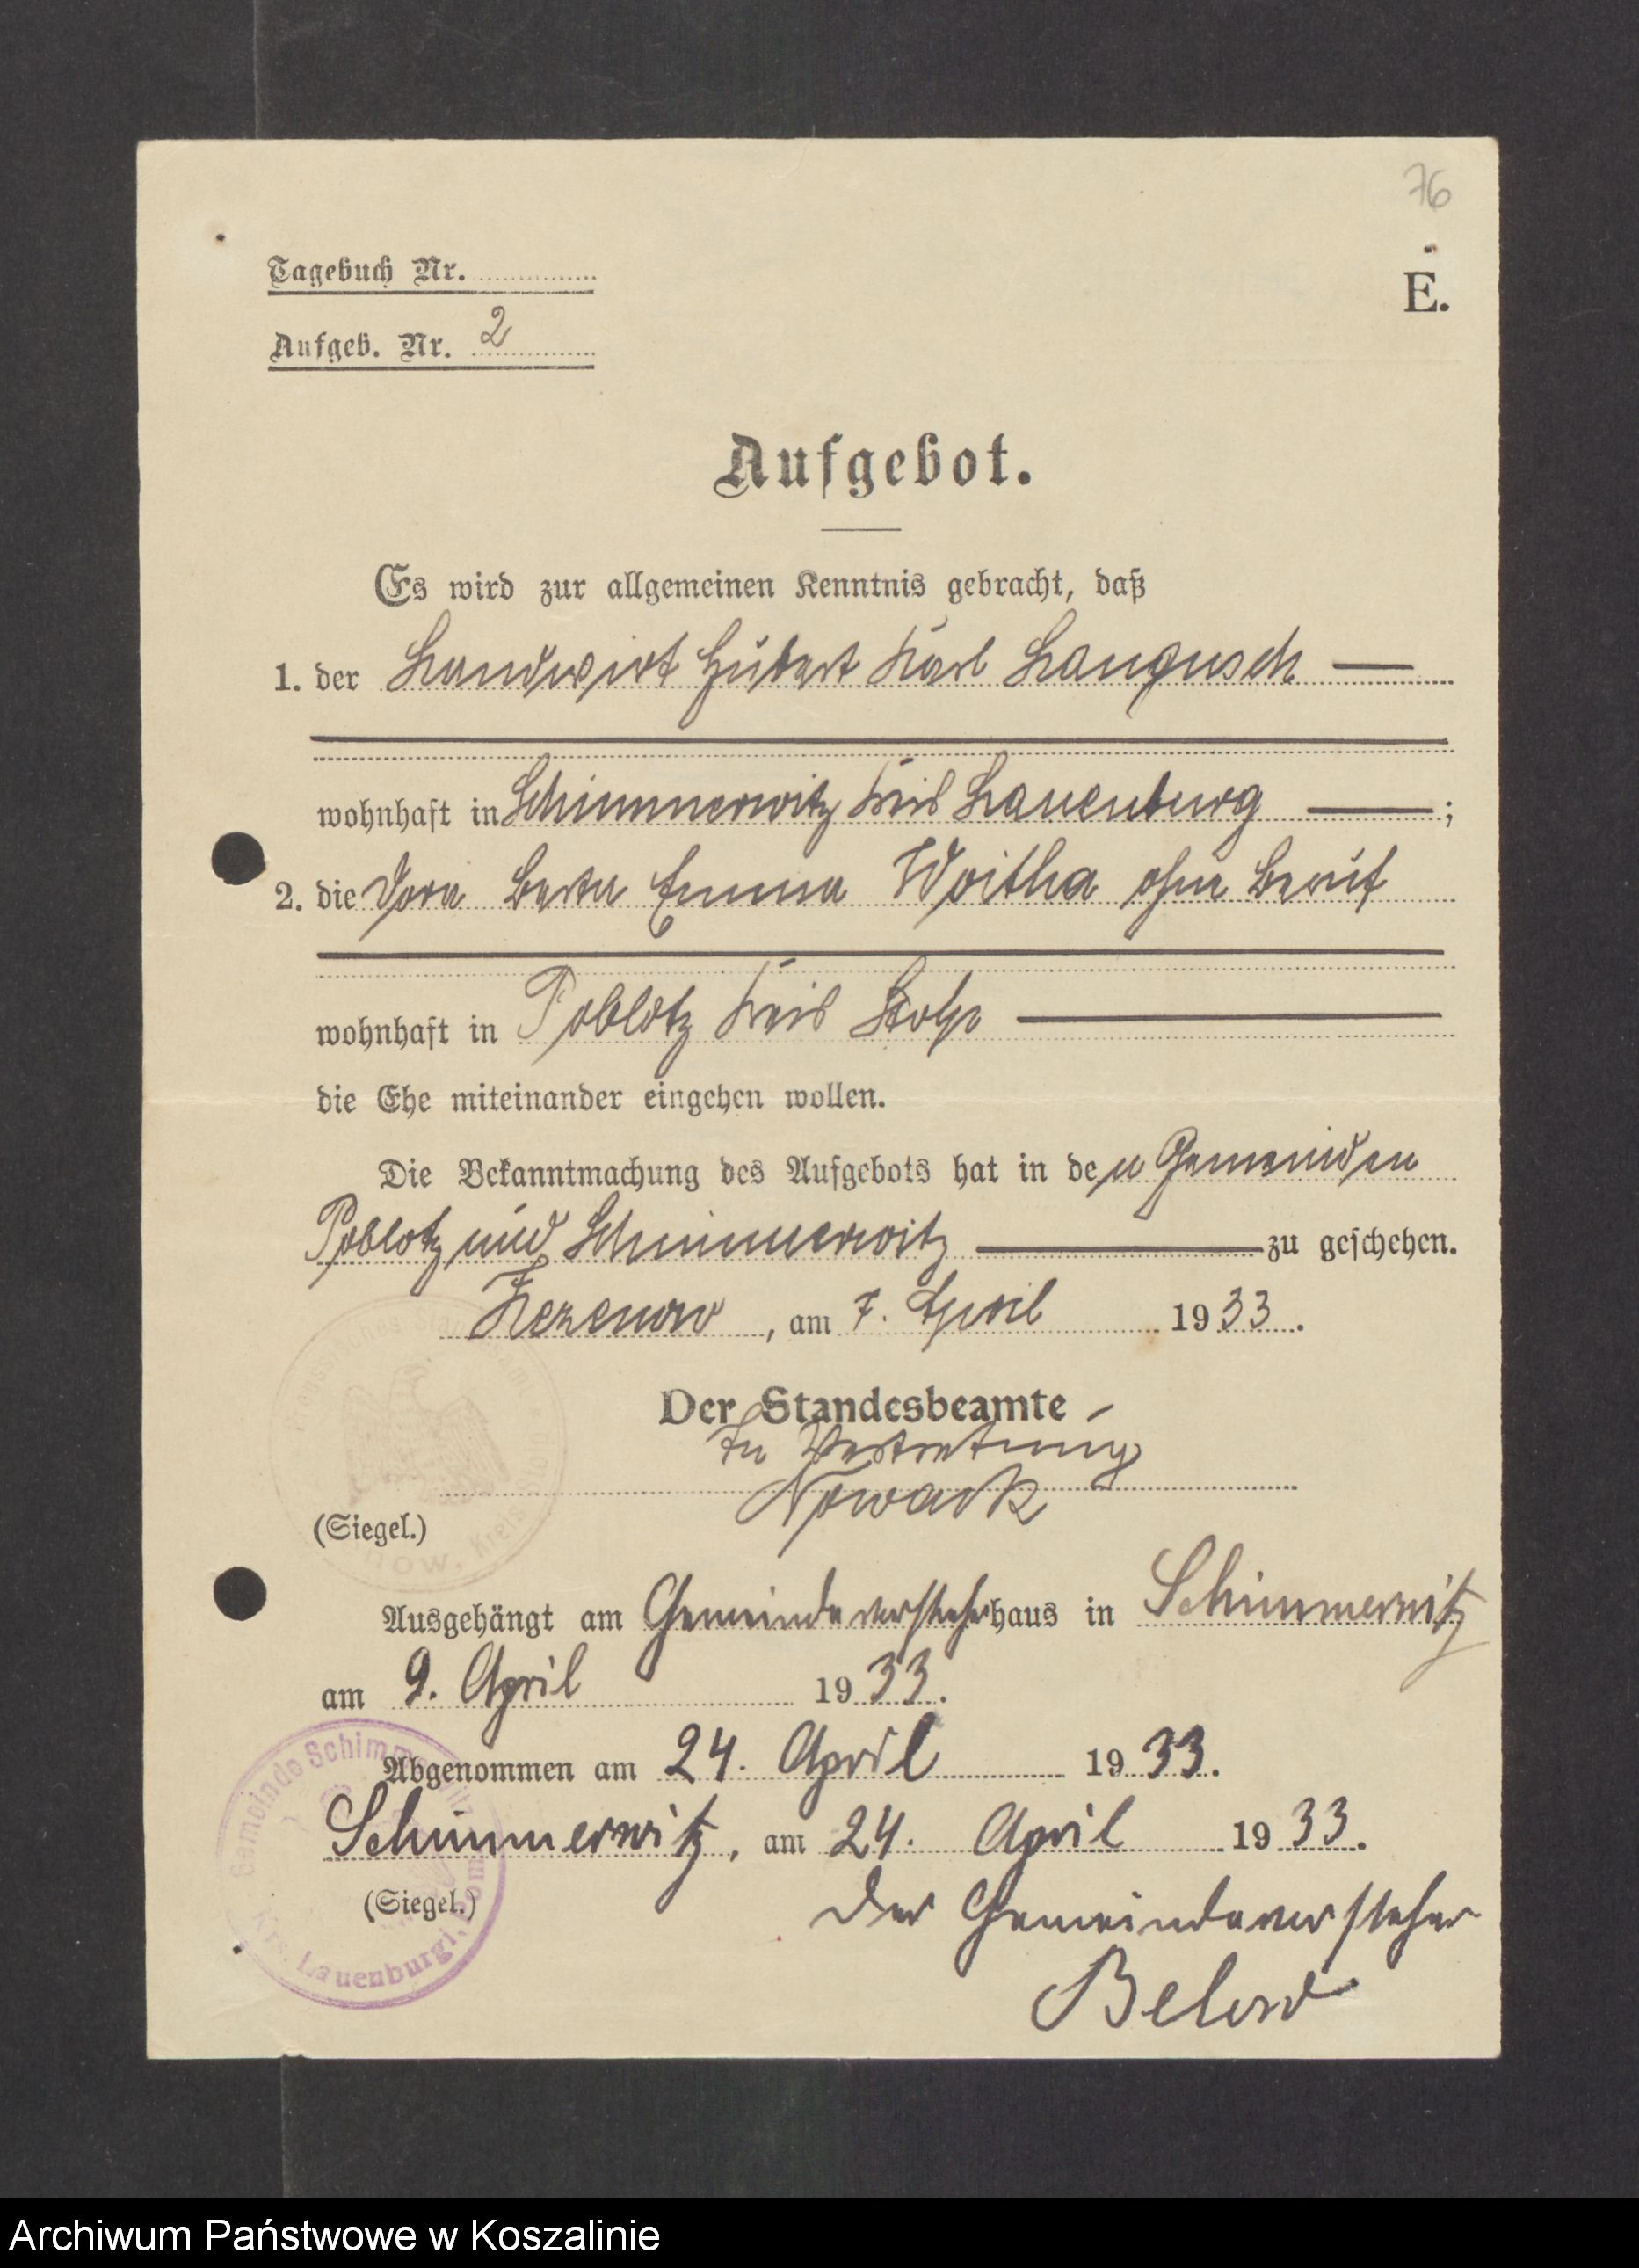 76
Tagebuch Nr.
E.
Aufgeb. Nr. 2
Aufgebot.
Es wird zur allgemeinen Kenntnis gebracht, daß
1. der Landwirt Hubert Karl Langusch
wohnhaft in Schimmerwitz Kreis Lauenburg ;
2. die Dora Berta Emma Woitha ohne Beruf
wohnhaft in Poblotz Kreis Stolp
die Ehe miteinander eingehen wollen.
Die Bekanntmachung des Aufgebots hat in den Gemeinden
Poblotz und Schimmerwitz zu geschehen.
Zezenow, am 7. April 1933.
Der Standesbeamte
In Vertretung
Nowack
(Siegel.)
now, Kreis
Ausgehängt am Gemeindevorsteherhaus in Schimmerwitz
am 9. April 1933.
Abgenommen am 24. April 1933.
Schimmerwitz, am 24. April 1933.
(Siegel.)
Gemeinde Schimmerwitz
Krs. Lauenburg i. Pom.
Der Gemeindevorsteher
Below
Archiwum Państwowe w Koszalinie